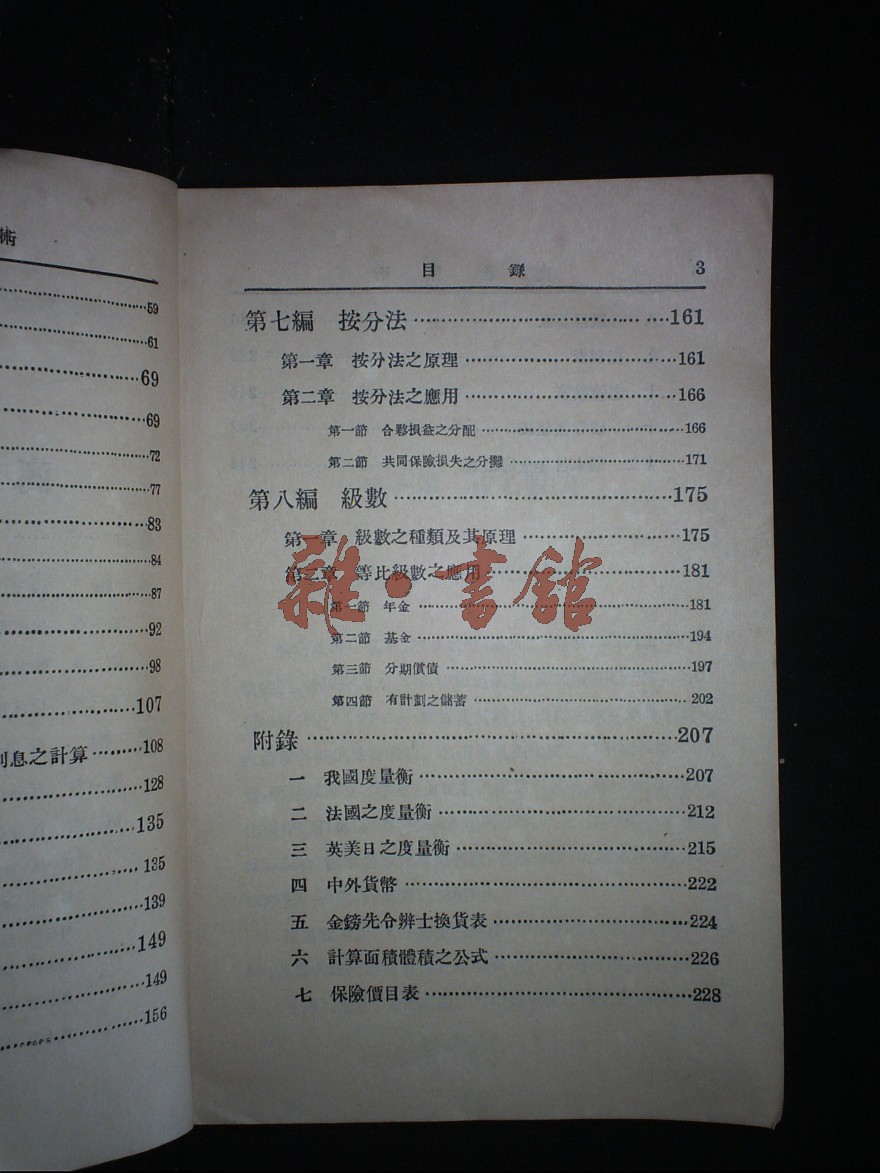 術
59
61
69
69
72
77
83
84
87
92
98
107
息之計算 108
128
135
135
139
149
149
156
目錄 3
第七編 按分法 161
第一章 按分法之原理 161
第二章 按分法之應用 166
第一節 合夥損益之分配 166
第二節 共同保險損失之分攤 171
第八編 級數 175
第一章 級數之種類及其原理 175
第二章 等比級數之應用 181
第一節 年金 181
第二節 基金 194
第三節 分期償債 197
第四節 有計劃之儲蓄 202
附錄 207
一 我國度量衡 207
二 法國之度量衡 212
三 英美日之度量衡 215
四 中外貨幣 222
五 金鎊先令辨士換貨表 224
六 計算面積體積之公式 226
七 保險價目表 228
雜·書館